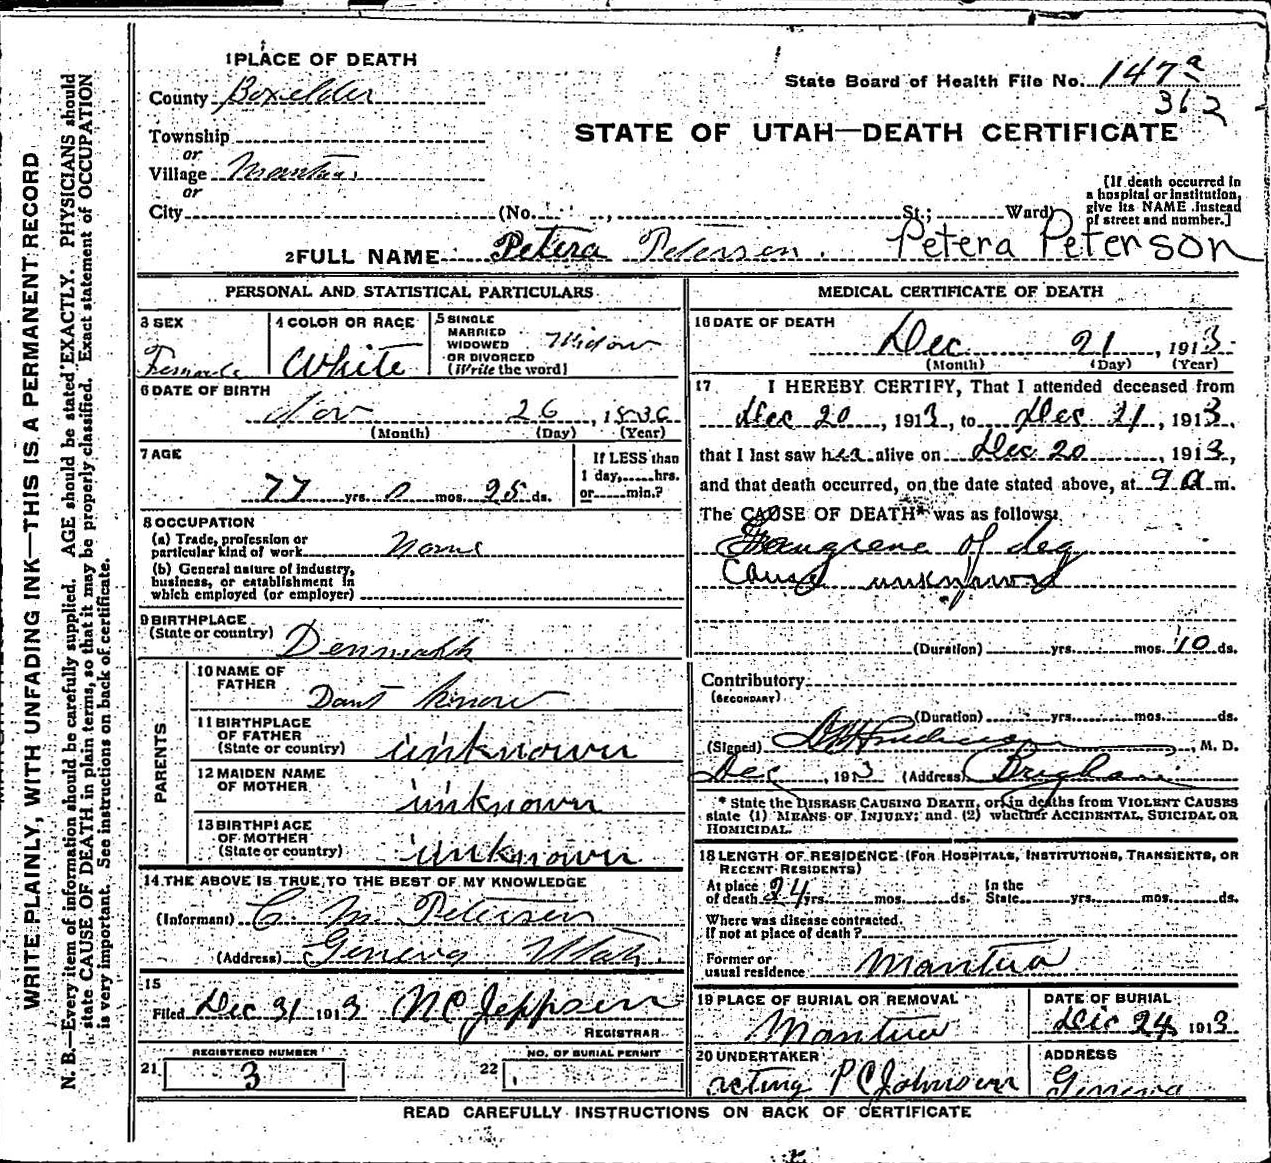 WRITE PLAINLY, WITH UNFADING INK—THIS IS A PERMANENT RECORD
N. B.—Every item of information should be carefully supplied. AGE should be stated EXACTLY. PHYSICIANS should
state CAUSE OF DEATH in plain terms, so that it may be properly classified. Exact statement of OCCUPATION
is very important. See instructions on back of certificate.
1 PLACE OF DEATH
State Board of Health File No. 147a
362
County Boxelder
STATE OF UTAH—DEATH CERTIFICATE
Township
or
Village Mantua
or
City (No. , St.; Ward)
[If death occurred in
a hospital or institution,
give its NAME instead
of street and number.]
2 FULL NAME Petera Petersen. Petera Peterson
PERSONAL AND STATISTICAL PARTICULARS
3 SEX
Female
4 COLOR OR RACE
White
5 SINGLE
MARRIED
WIDOWED
OR DIVORCED
(Write the word)
Widow
6 DATE OF BIRTH
Nov 26, 1836
(Month) (Day) (Year)
7 AGE
77 yrs. 0 mos. 25 ds.
If LESS than
1 day, hrs.
or min.?
8 OCCUPATION
(a) Trade, profession or
particular kind of work None
(b) General nature of industry,
business, or establishment in
which employed (or employer)
9 BIRTHPLACE
(State or country) Denmark
PARENTS
10 NAME OF
FATHER Dont Know
11 BIRTHPLACE
OF FATHER
(State or country) unknown
12 MAIDEN NAME
OF MOTHER unknown
13 BIRTHPLACE
OF MOTHER
(State or country) unknown
14 THE ABOVE IS TRUE TO THE BEST OF MY KNOWLEDGE
(Informant) C M Petersen
(Address) Geneva Utah.
15
Filed Dec 31 1913 NC Jeppsen
REGISTRAR
REGISTERED NUMBER
21 3
NO. OF BURIAL PERMIT
22
MEDICAL CERTIFICATE OF DEATH
16 DATE OF DEATH
Dec 21, 1913
(Month) (Day) (Year)
17 I HEREBY CERTIFY, That I attended deceased from
Dec 20, 1913, to Dec 21, 1913,
that I last saw her alive on Dec 20, 1913,
and that death occurred, on the date stated above, at 9 a m.
The CAUSE OF DEATH* was as follows:
Gangrene of leg
cause unknown
(Duration) yrs. mos. 10 ds.
Contributory
(SECONDARY)
(Duration) yrs. mos. ds.
(Signed) , M. D.
Dec , 1913 (Address) Brigham
* State the DISEASE CAUSING DEATH, or, in deaths from VIOLENT CAUSES
state (1) MEANS OF INJURY; and (2) whether ACCIDENTAL, SUICIDAL OR
HOMICIDAL.
18 LENGTH OF RESIDENCE (FOR HOSPITALS, INSTITUTIONS, TRANSIENTS, OR
RECENT RESIDENTS)
At place
of death 24 yrs. mos. ds.
In the
State yrs. mos. ds.
Where was disease contracted.
If not at place of death?
Former or
usual residence Mantua
19 PLACE OF BURIAL OR REMOVAL
Mantua
DATE OF BURIAL
Dec 24, 1913
20 UNDERTAKER
acting P C Johnson
ADDRESS
Geneva
READ CAREFULLY INSTRUCTIONS ON BACK OF CERTIFICATE